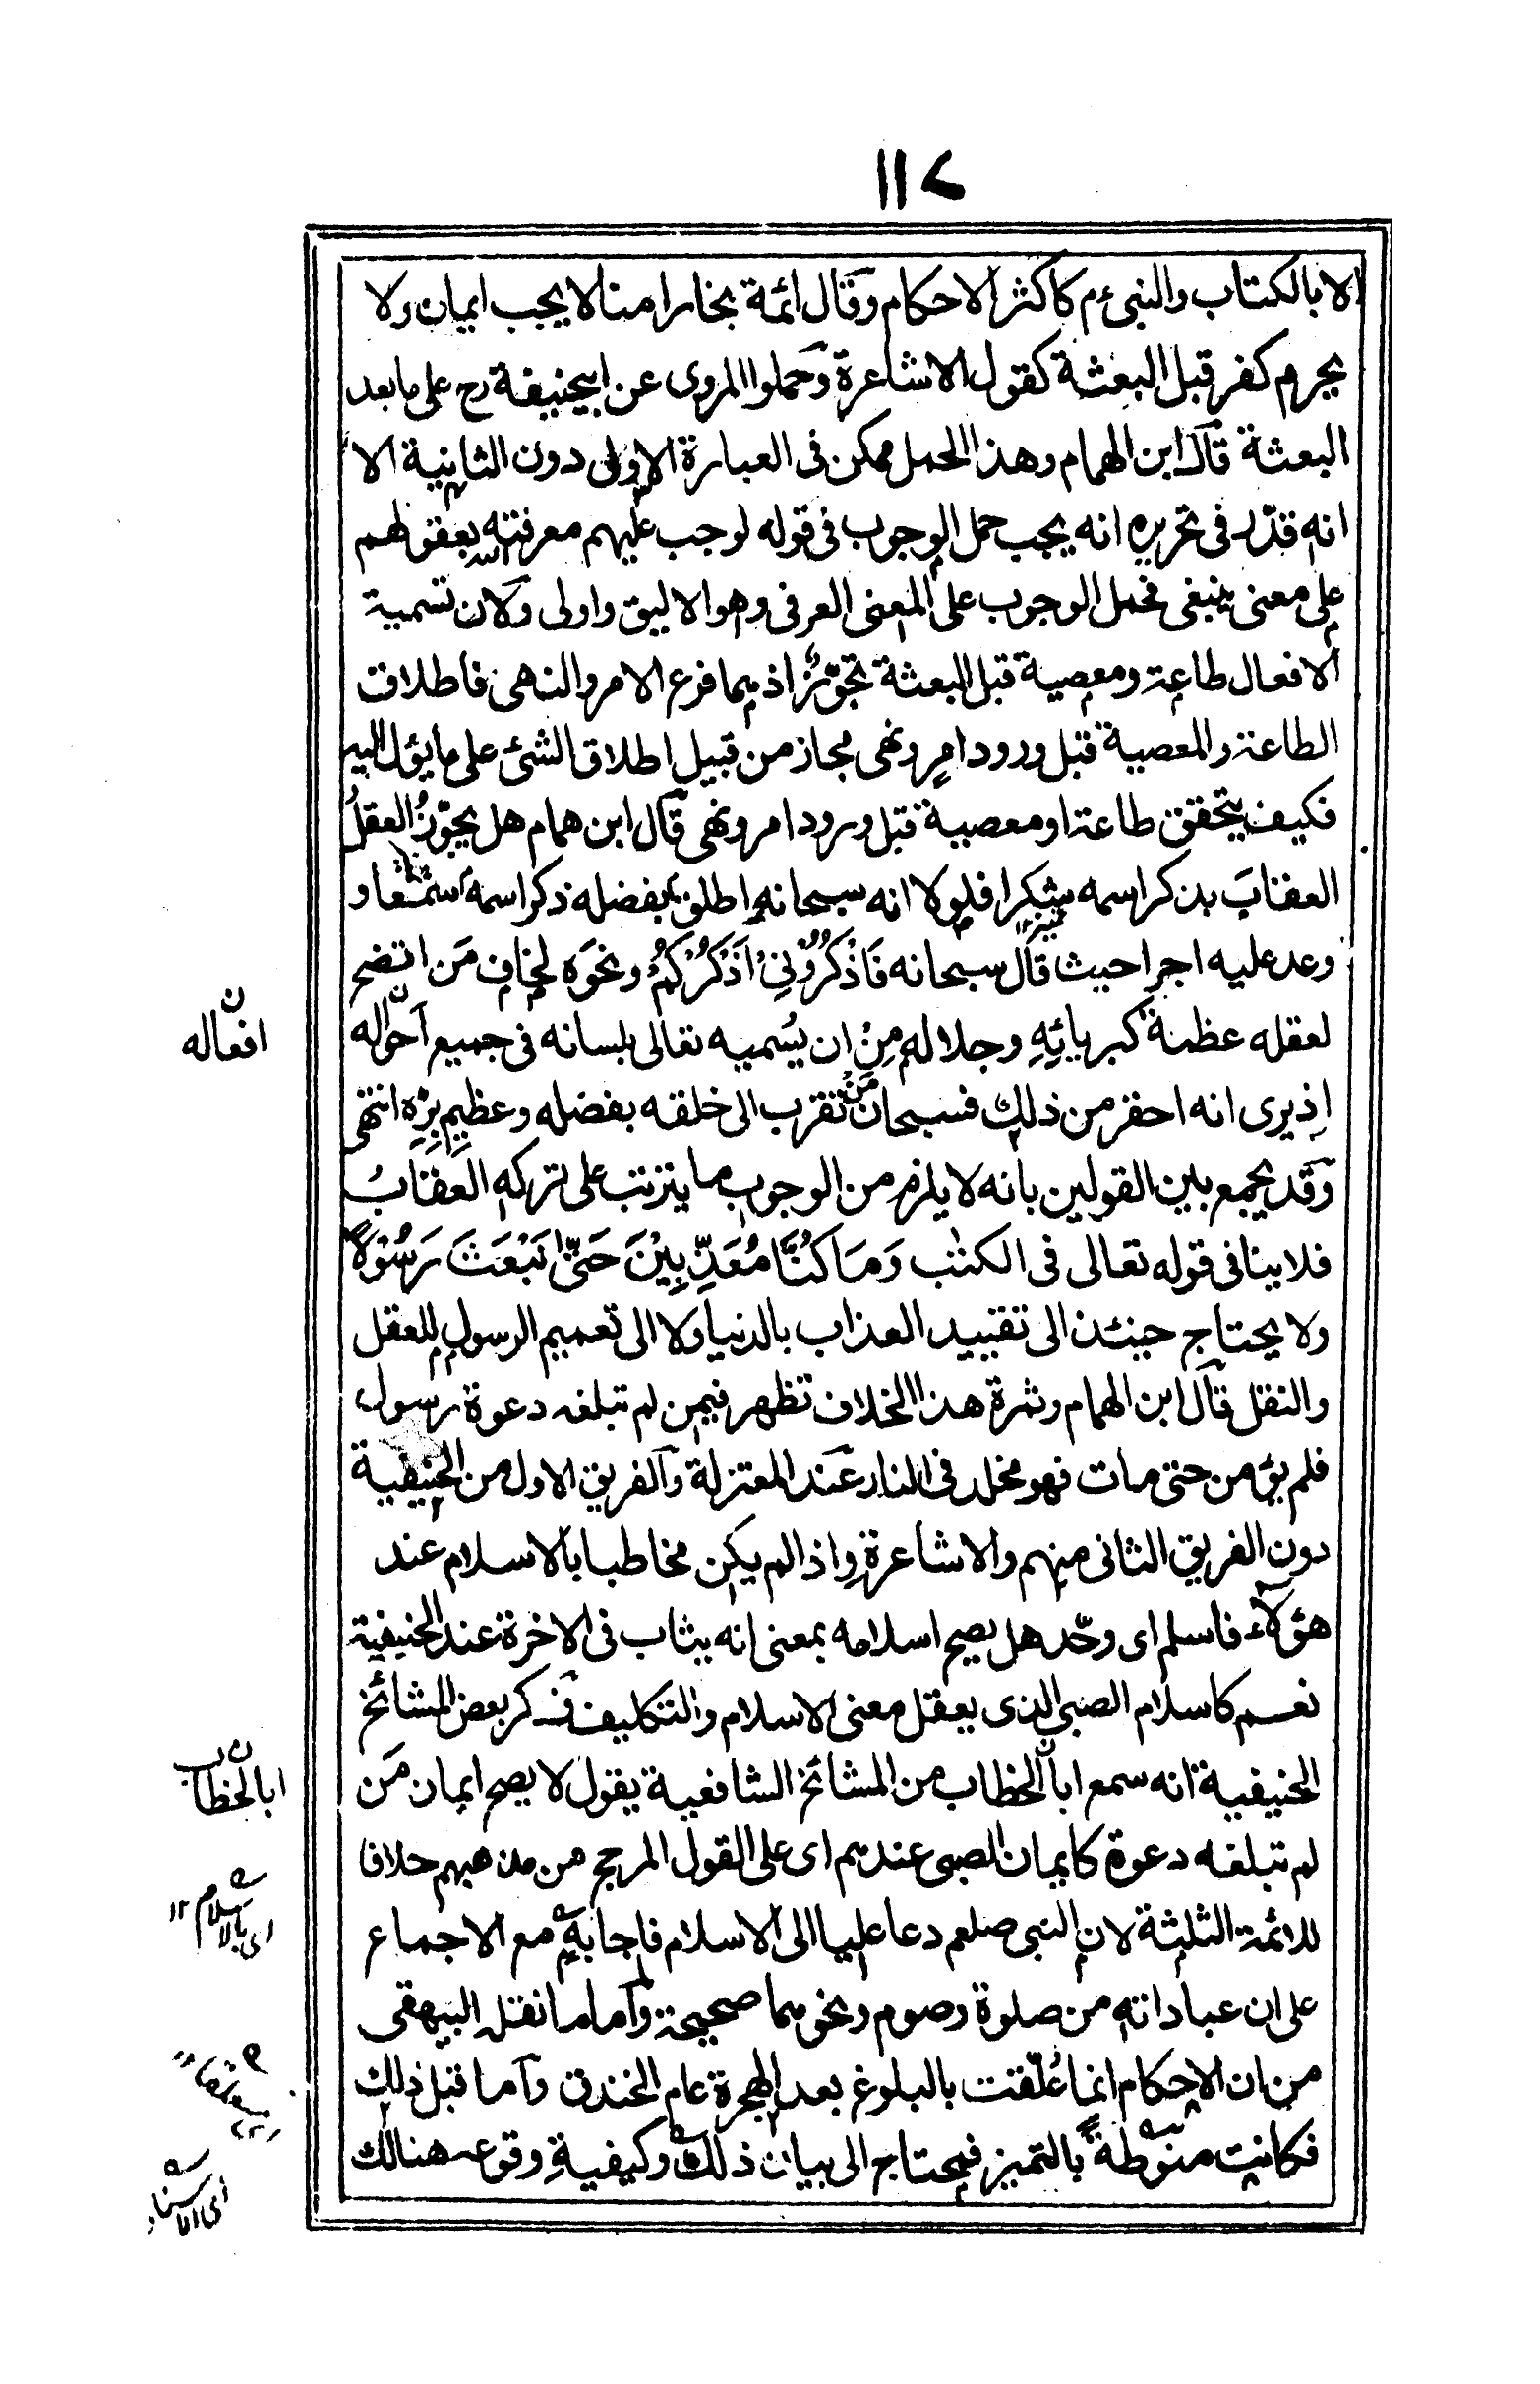 ١١٧
الا بالكتاب والنبىءم كاكثر الاحكام وقال ائمة بخارا منا لا يجب ايمان ولا
يحرم كفر قبل البعثة كقول الاشاعرة وحملوا المروى عن ابيحنيفة رح على ما بعد
البعثة قال ابن الهمام وهذا الحمل ممكن فى العبارة الاولى دون الثانية الا
انه قدّر فى تحريره انه يجب حمل الوجوب فى قوله لوجب عليهم معرفته بعقولهم
على معنى ينبغى فحمل الوجوب على المعنى العرفى وهو الاليق واولى ولان تسمية
الافعال طاعة ومعصية قبل البعثة تجوّزٌ اذ هما فرع الامر والنهى فاطلاق
الطاعة والمعصية قبل ورود امرٍ ونهى مجاز من قبيل اطلاق الشئ على ما يؤل اليه
فكيف يتحقق طاعة او معصية قبل ورود امر ونهى قال ابن همام هل يجوّزُ العقلُ
العقابَ بذكر اسمه شكرا فلولا انه سبحانه اطلق بفضله ذكر اسمه سمعا و
وعد عليه اجرا حيث قال سبحانه فَاذْكُرُوْنِىْ اَذْكُرْكُمْ ونحوَه لخاف مَن اتضح
لعقله عظمةُ كبريائِهِ وجلاله مِنْ ان يُسميه تعالى بلسانه فى جميع احواله
اذ يرى انه احقر من ذلك فسبحان مَنْ تقرب الى خلقه بفضله وعظيم بِرِّه انتهى
وقد يجمع بين القولين بانه لا يلزم من الوجوب ما يترتب على تركه العقابُ
فلا ينافى قوله تعالى فى الكتٰب وَمَا كُنَّا مُعَذِّبِيْنَ حَتّٰى نَبْعَثَ رَسُوْلًا
ولا يحتاج حينئذ الى تقييد العذاب بالدنيا ولا الى تعميم الرسول للعقل
والنقل قال ابن الهمام وثمرة هذا الخلاف تظهر فيمن لم تبلغه دعوة رسول
فلم يؤمن حتى مات فهو مخلد فى النار عند المعتزلة والفريق الاول من الحنيفية
دون الفريق الثانى منهم والاشاعرة واذا لم يكن مخاطبا بالاسلام عند
هؤلآء فاسلم اى وحّد هل يصح اسلامه بمعنى انه يثاب فى الاخرة عند الحنيفية
نعم كاسلام الصبى الذى يعقل معنى الاسلام والتكليف فذكر بعض المشائخ
الحنيفية انه سمع ابا الخطاب من المشائخ الشافعية يقول لا يصح ايمان مَن
لم تبلغه دعوة كايمان الصبى عندهم اى على القول المرجح من مذهبهم خلافا
للائمة الثلثة لان النبى صلعم دعا عليا الى الاسلام فاجابه مع الاجماع
على ان عباداته من صلوة وصوم ونحوهما صحيحة واما ما نقله البيهقى
من ان الاحكام انما عُلّقت بالبلوغ بعد الهجرة عام الخندق واما قبل ذلك
فكانت منوطةً بالتميز فيحتاج الى بيان ذلك وكيفيةِ وقوعه هنالك
ن
افعاله
ن
ابا الخطاب
اى بالاسلام ١٢
اى الاسناد